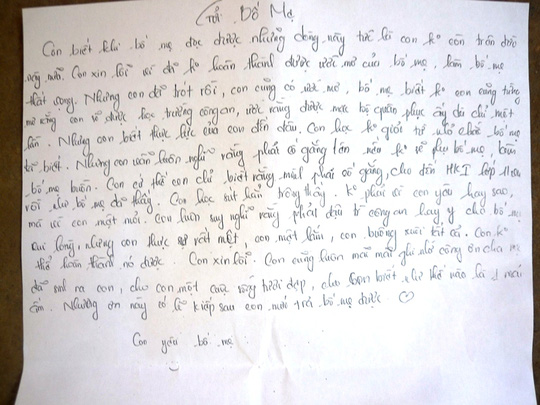 Gửi Bố Mẹ
Con biết khi bố mẹ đọc được những dòng này tức là con k° còn trên đời
này nữa. Con xin lỗi vì đã k° hoàn thành được ước mơ của bố mẹ, làm bố mẹ
thất vọng. Nhưng con đã trót rồi, con cũng có ước mơ, bố mẹ biết k° con cũng từng
mơ rằng con sẽ được học trường công an, ước rằng được mặc bộ quân phục ấy dù chỉ một
lần. Nhưng con biết thực lực của con đến đâu. Con học k° giỏi từ nhỏ chắc bố mẹ
biết. Nhưng con luôn nghĩ rằng phải cố gắng lên nếu k° sẽ phụ bố mẹ, làm
bố mẹ buồn. Con cứ thế con chỉ biết rằng mình phải cố gắng, cho đến HKI lớp
rồi như bố mẹ đã thấy. Con học sút hẳn trông thấy. k° phải vì con yêu hay sao,
mà vì con mệt mỏi. Con luôn suy nghĩ rằng phải đậu trường công an hay y cho bố mẹ
vui lòng, nhưng con thực sự rất mệt, con mệt lắm, con buông xuôi tất cả. Con k°
thể hoàn thành nó được. Con xin lỗi. Con cũng luôn mãi mãi ghi nhớ công ơn cha mẹ
đã sinh ra con, cho con một cuộc sống tươi đẹp, cho con biết như thế nào là 1 mái
ấm. Nhưng ơn này có lẽ kiếp sau con mới trả bố mẹ được ♡
Con yêu bố mẹ